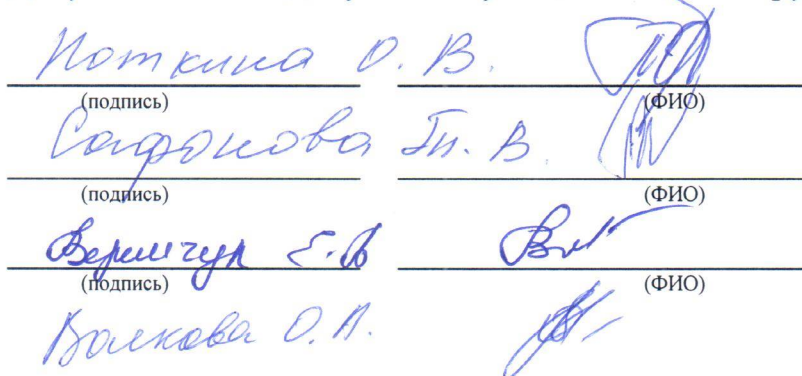 Поткина О. В.
(подпись) (ФИО)
Сафонова Тп. В.
(подпись) (ФИО)
Е. В
(подпись) (ФИО)
Волкова О. А.